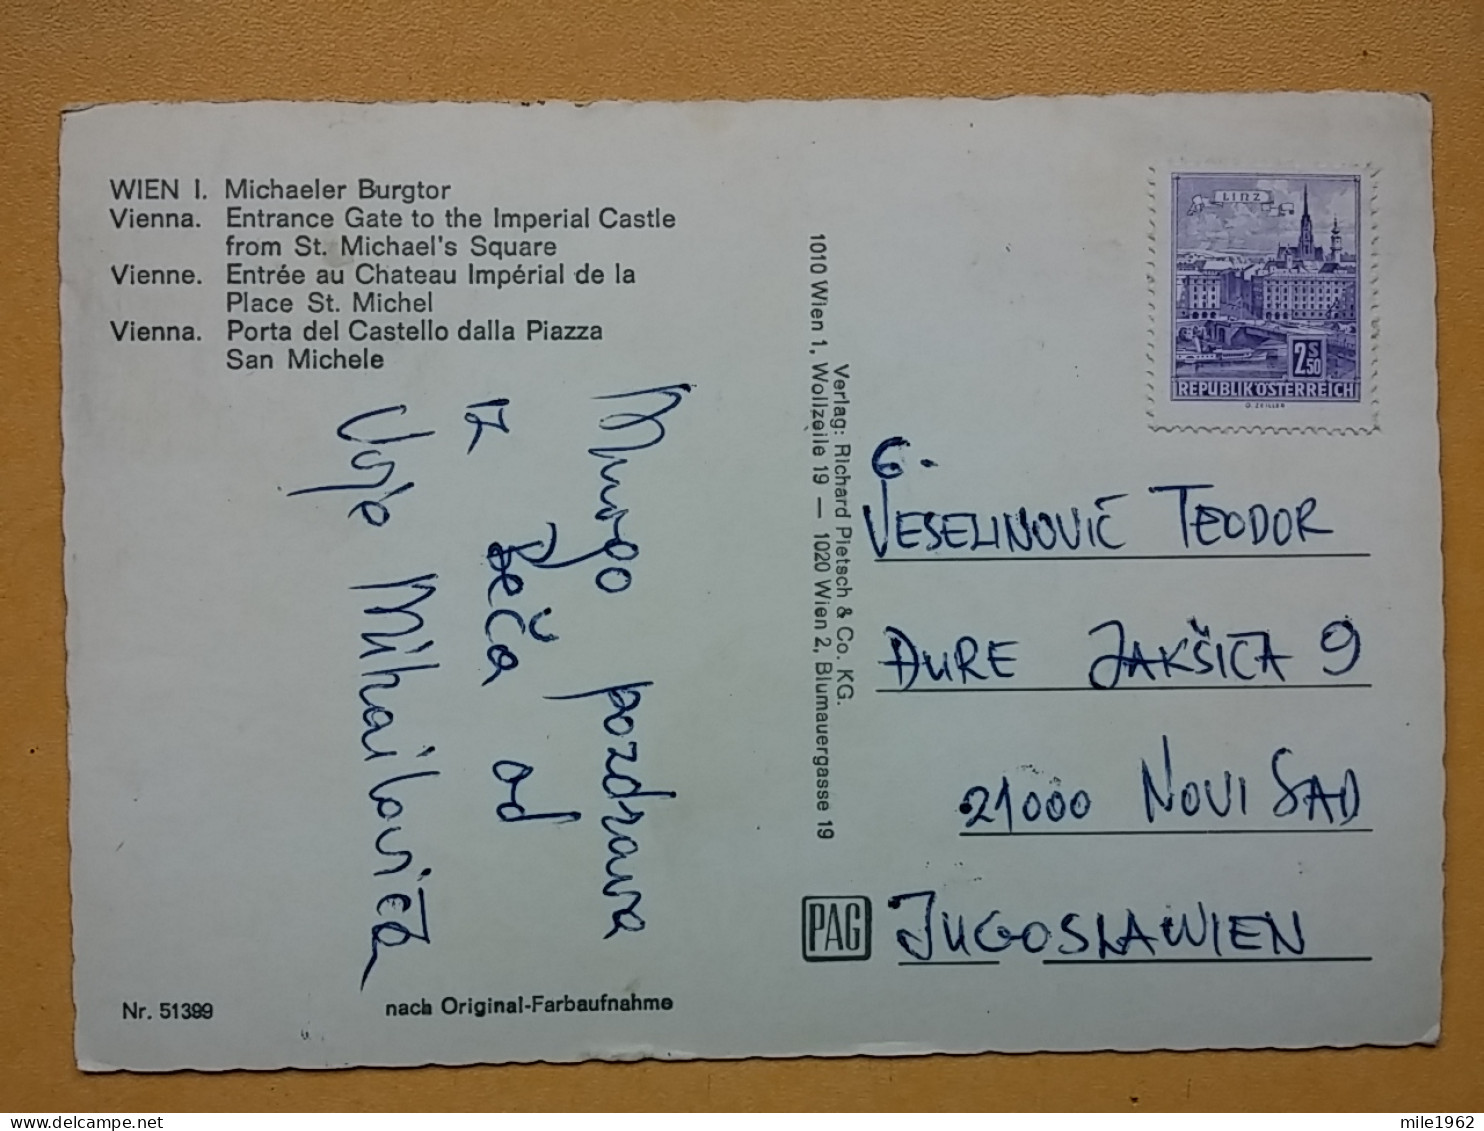 WIEN I. Michaeler Burgtor
Vienna. Entrance Gate to the Imperial Castle
from St. Michael's Square
Vienne. Entrée au Chateau Impérial de la
Place St. Michel
Vienna. Porta del Castello dalla Piazza
San Michele
Mnogo pozdrava
iz Beča od
Mihailovića
Nr. 51399
nach Original-Farbaufnahme
Verlag: Richard Pietsch & Co. KG.
1010 Wien 1, Wollzeile 19 — 1020 Wien 2, Blumauergasse 19
PAG
LINZ
2S50
REPUBLIK ÖSTERREICH
O. ZEILLER
G.
VESELINOVIĆ TEODOR
ĐURE JAKŠIĆA 9
21000 NOVI SAD
JUGOSLAWIEN
mile1962